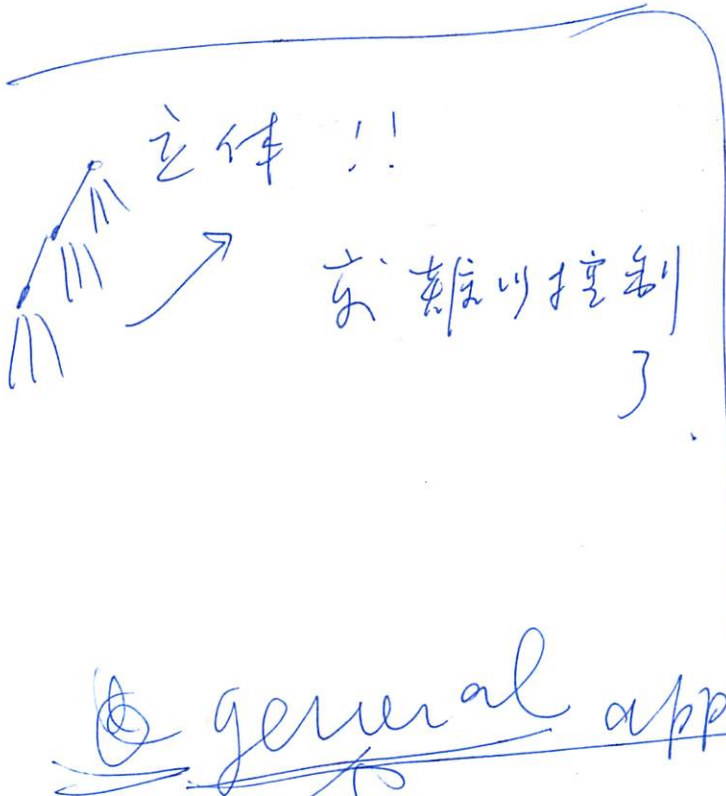 立体!!
就難以控制
了.
general app